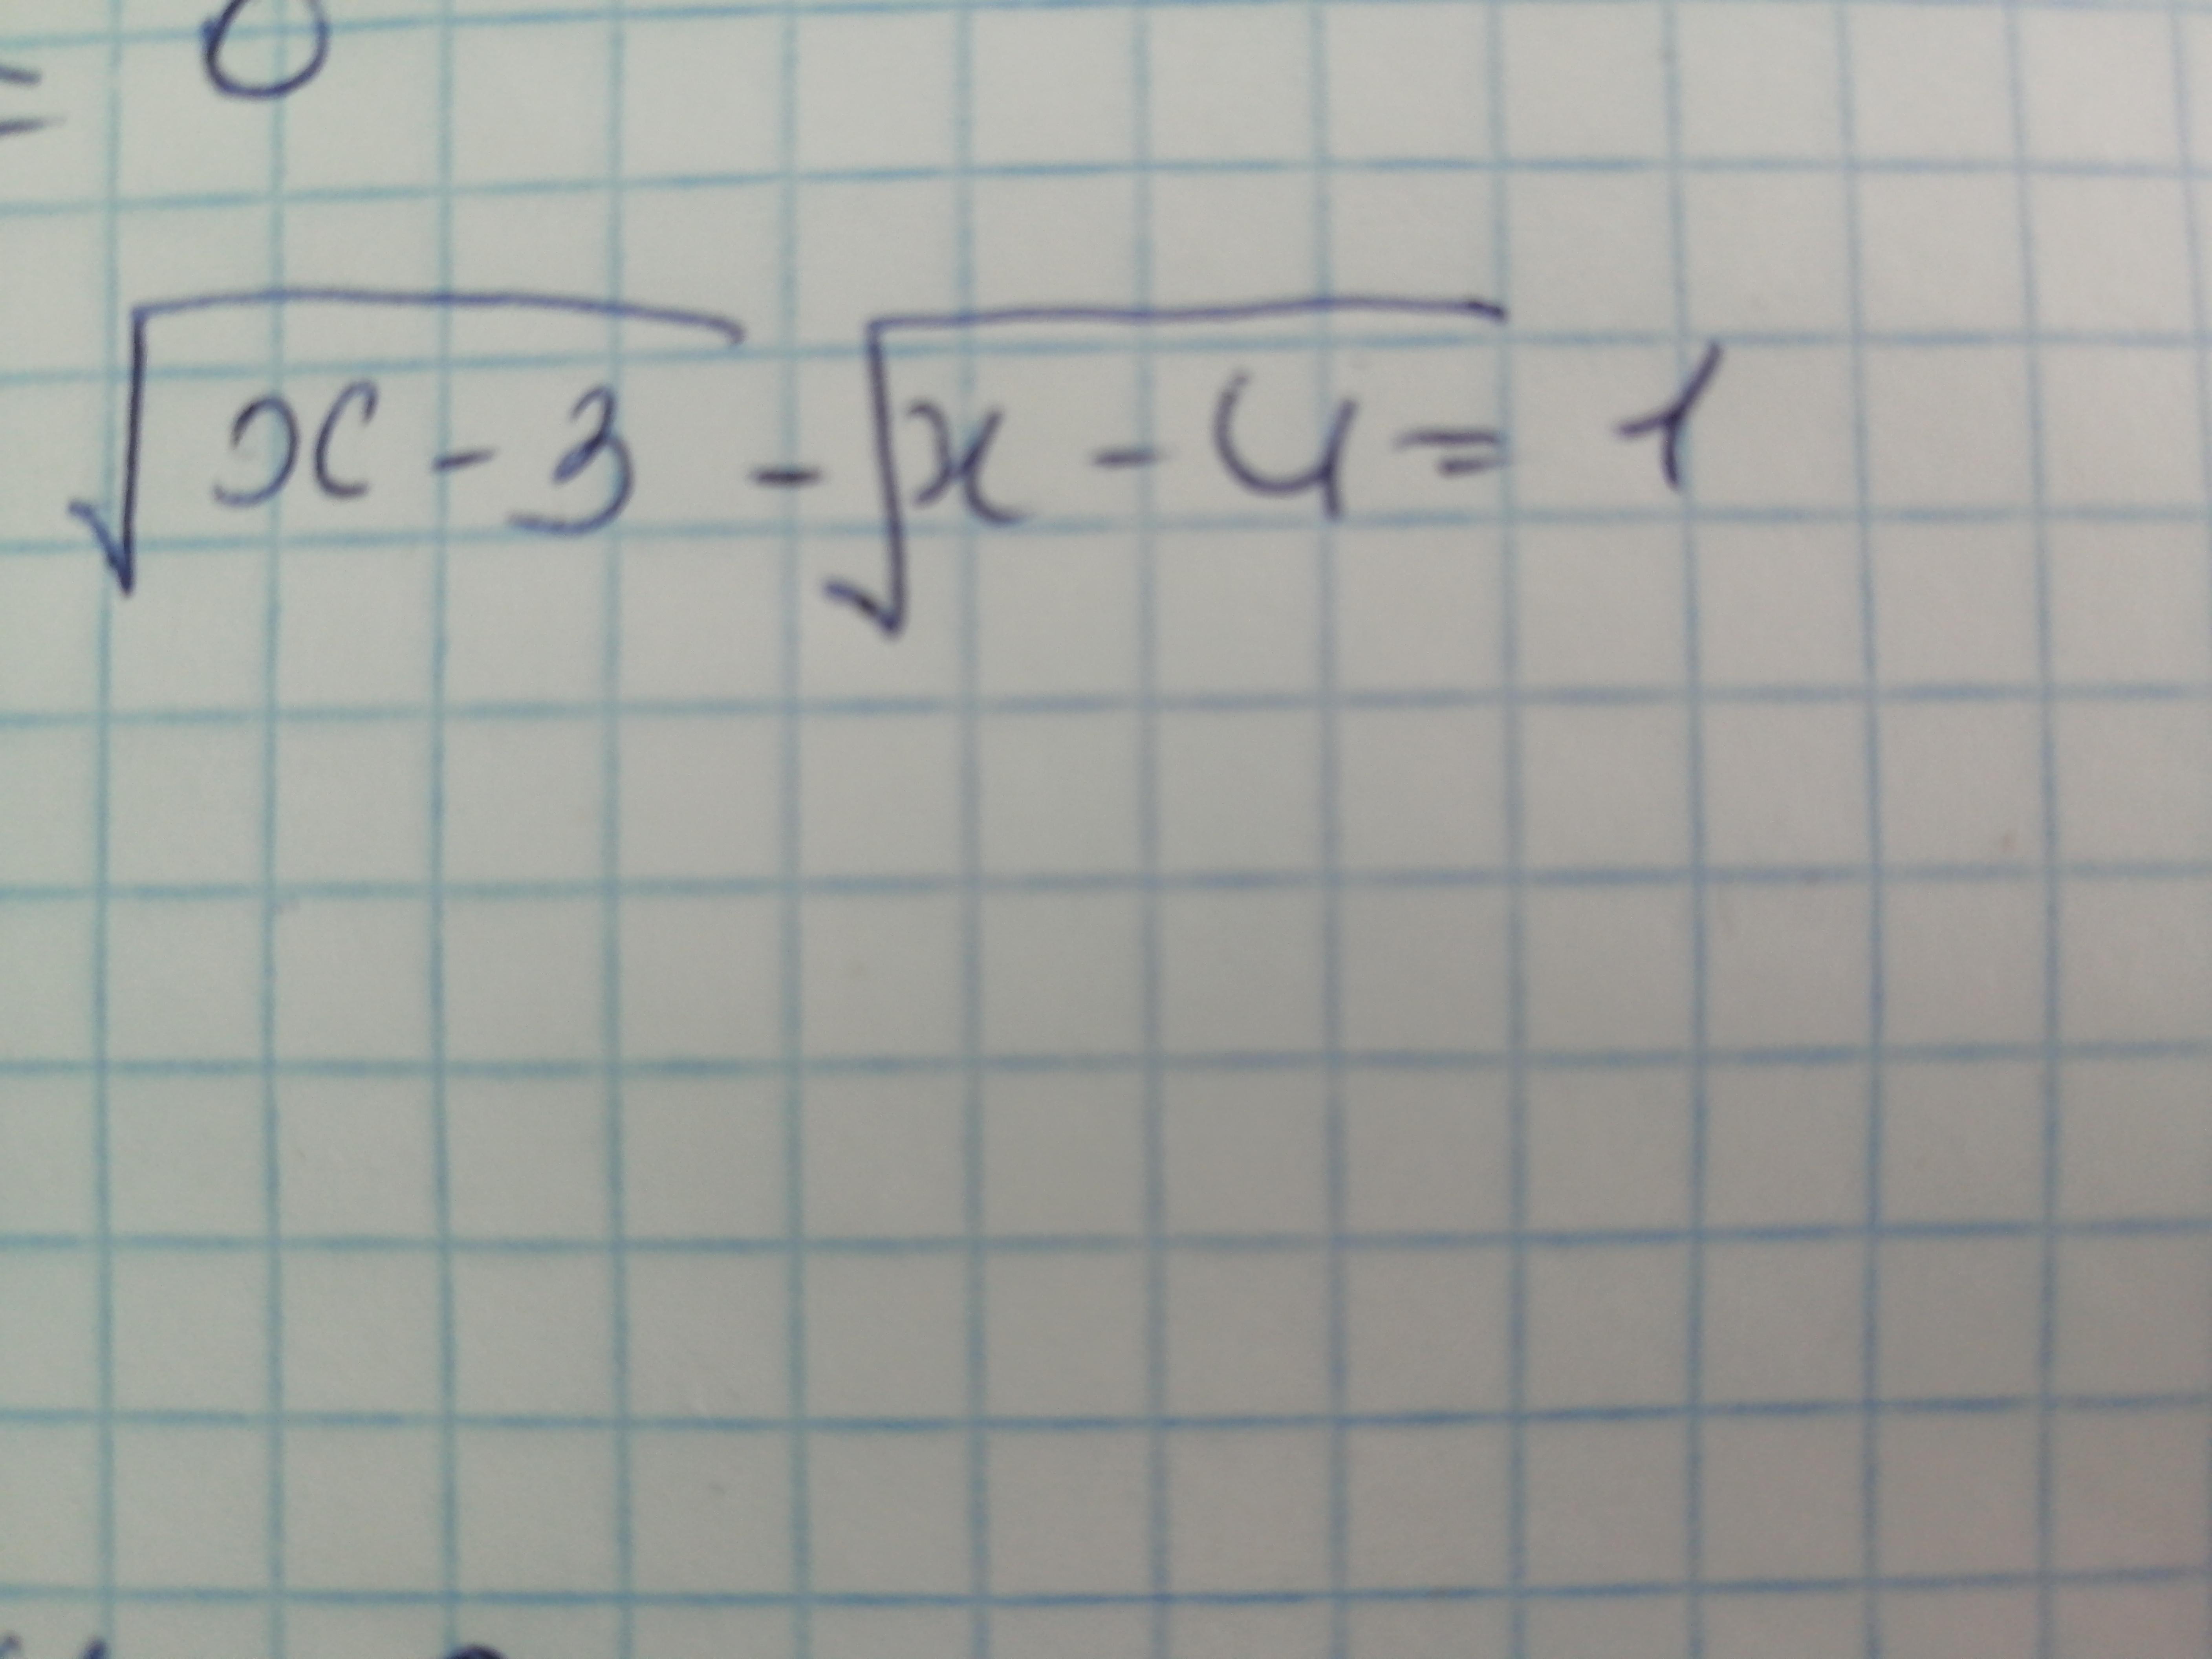 = 0
√(x - 3) - √(x - 4) = 1